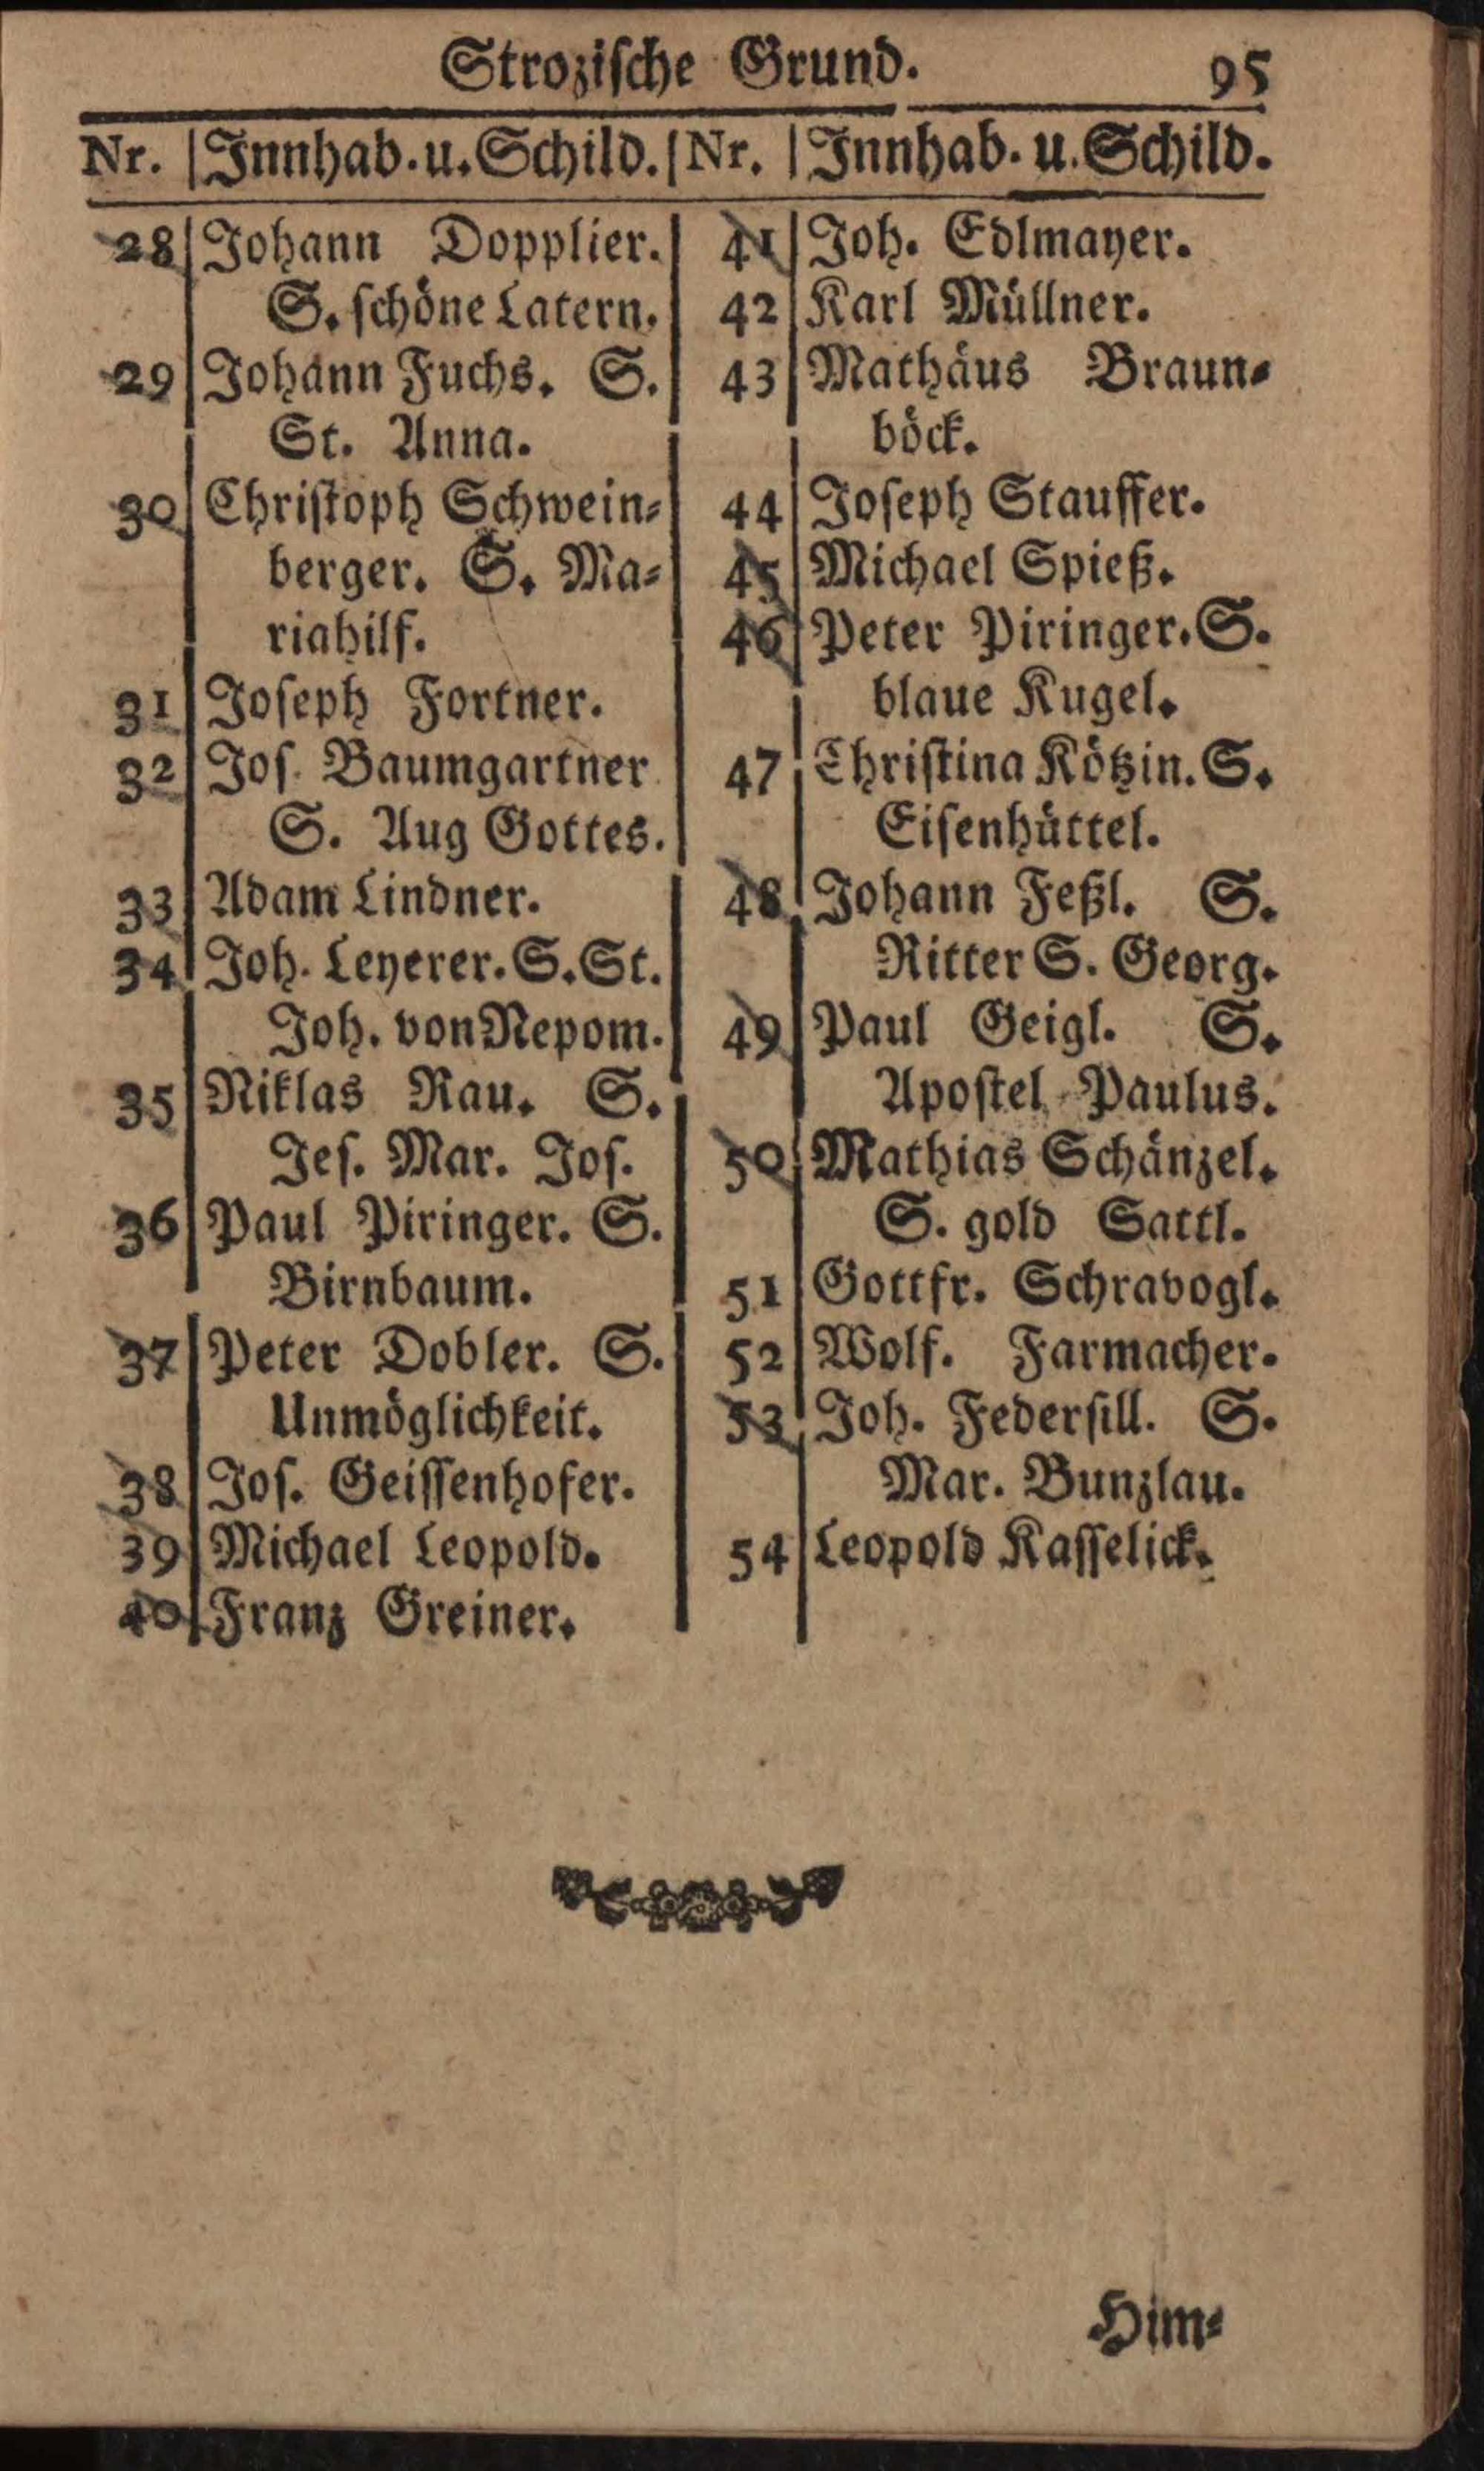 Strozische Grund. 95
Nr. | Innhab. u. Schild. | Nr. | Innhab. u. Schild.
28 Johann Dopplier.
S. schöne Latern.
29 Johann Fuchs. S.
St. Anna.
30 Christoph Schwein-
berger. S. Ma-
riahilf.
31 Joseph Fortner.
32 Jos. Baumgartner
S. Aug Gottes.
33 Adam Lindner.
34 Joh. Leyerer. S. St.
Joh. von Nepom.
35 Niklas Rau. S.
Jes. Mar. Jos.
36 Paul Piringer. S.
Birnbaum.
37 Peter Dobler. S.
Unmöglichkeit.
38 Jos. Geissenhofer.
39 Michael Leopold.
40 Franz Greiner.
41 Joh. Edlmayer.
42 Karl Müllner.
43 Mathäus Braun-
böck.
44 Joseph Stauffer.
45 Michael Spieß.
46 Peter Piringer. S.
blaue Kugel.
47 Christina Kötzin. S.
Eisenhüttel.
48 Johann Feßl. S.
Ritter S. Georg.
49 Paul Geigl. S.
Apostel Paulus.
50 Mathias Schänzel.
S. gold Sattl.
51 Gottfr. Schravogl.
52 Wolf. Farmacher.
53 Joh. Federsill. S.
Mar. Bunzlau.
54 Leopold Kasselick.
Him-